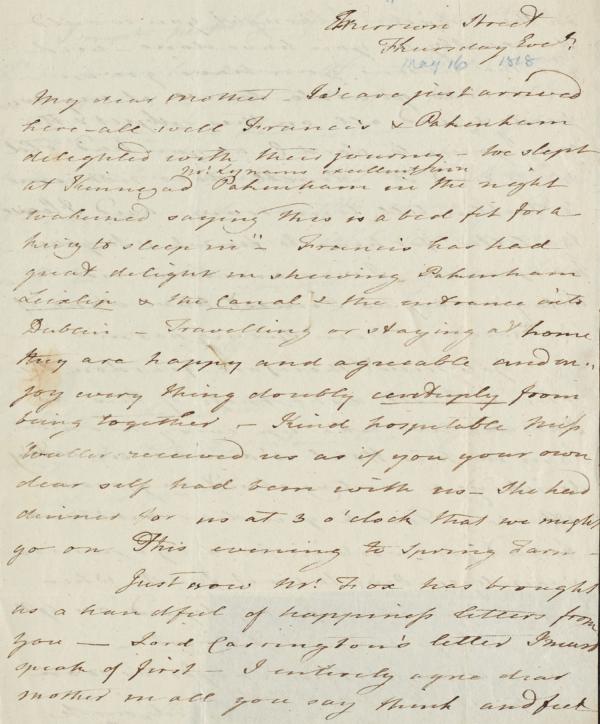 Merrion Street
Thursday Eve.g
May 16 1818
My dear Mother We are just arrived
here - all well Francis & Pakenham
delighted with their journey - We slept
Mrs. Lynams excellent Inn
at Kinnegad Pakenham in the night
wakened saying this is a bed fit for a
king to sleep in" - Francis has had
great delight in shewing Pakenham
Leixlip & the Canal & the entrance into
Dublin - Travelling or staying at home
they are happy and agreeable and en-
joy every thing doubly centuply from
being together - Kind hospitable Miss
Waller received us as if you your own
dear self had been with us - She had
dinner for us at 3 o'clock that we might
go on This evening to Spring Farm -
Just now Mr. Fox has brought
us a handful of happiness letters from
you — Lord Carrington's letter I must
speak of first - I entirely agree dear
mother in all you say think and feel